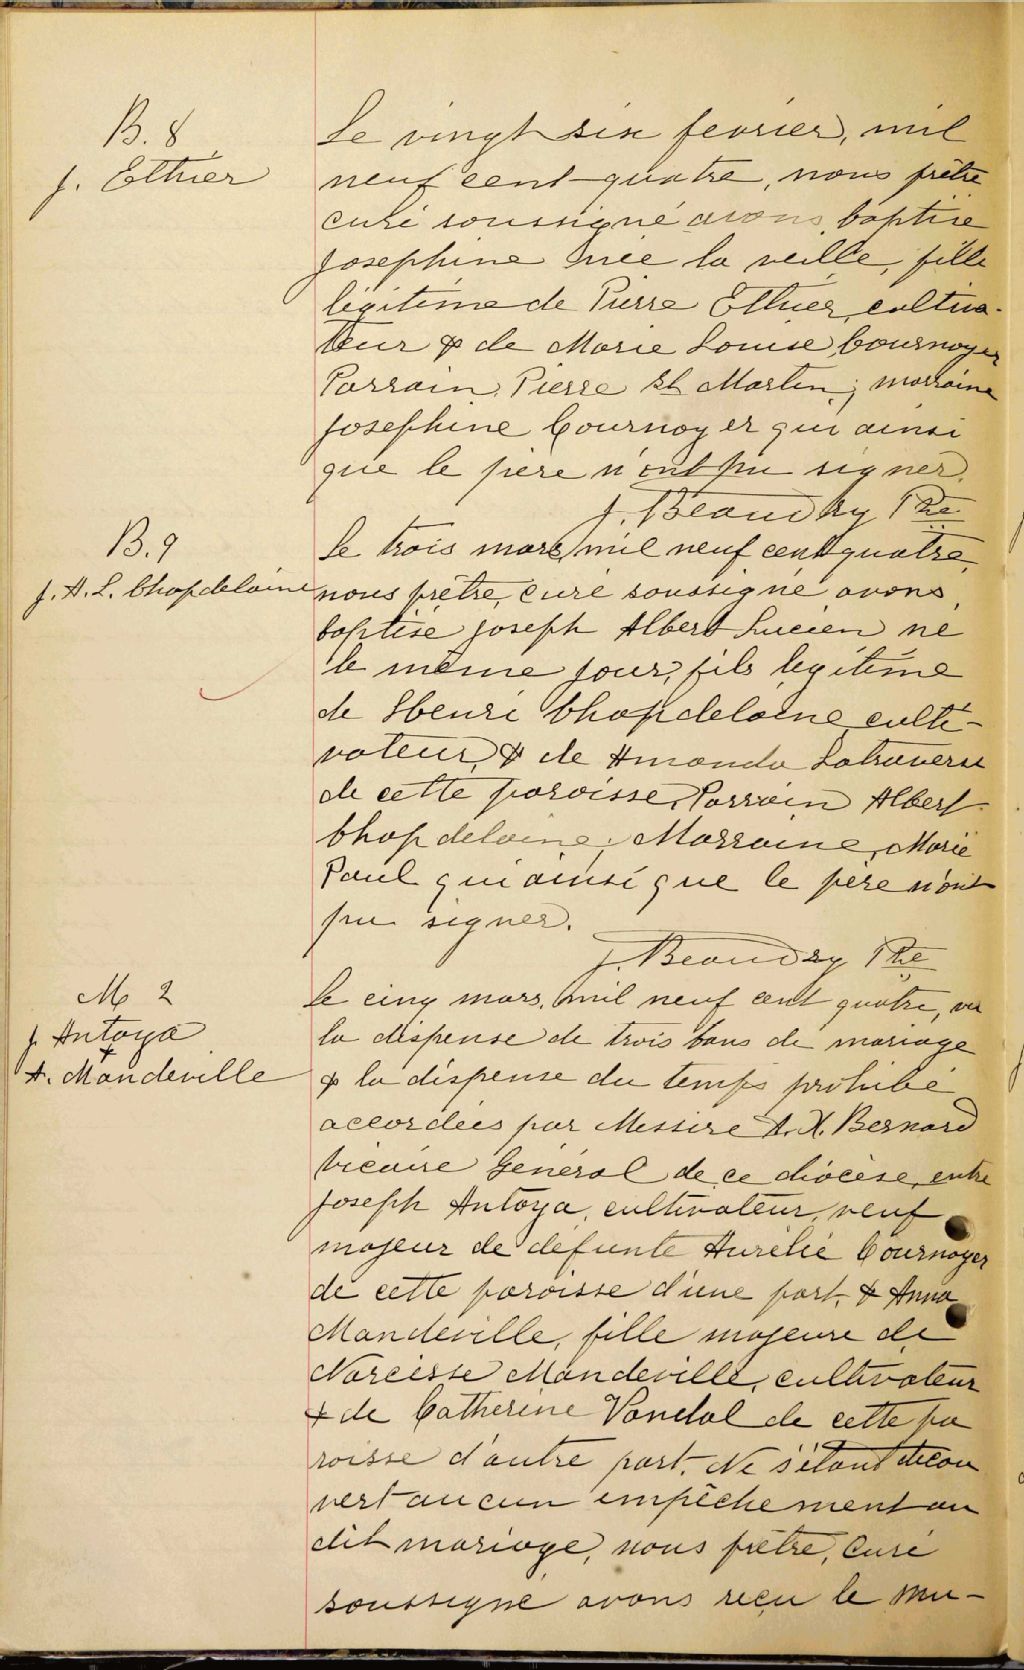 B. 8
J. Ethier
Le vingt six fevrier, mil
neuf cent quatre, nous prêtre
curé soussigné avons baptisé
Josephine née la veille, fille
légitime de Pierre Ethier cultiva-
teur & de Marie Louise Cournoyer
Parrain Pierre St Martin; marraine
Josephine Cournoyer qui ainsi
que le père n'ont pu signer.
J. Beaudry Ptre
B. 9
J. A. L. Chapdelaine
Le trois mars mil neuf cent quatre,
nous prêtre, curé soussigné avons
baptisé Joseph Albert Lucien né
le même jour, fils légitime
de Henri Chapdelaine culti-
vateur & de Amanda Latraverse
de cette paroisse, Parrain Albert
Chapdelaine; Marraine, Marie
Paul qui ainsi que le père n'ont
pu signer.
J. Beaudry Ptre
M 2
J. Antaya
+
A. Mandeville
Le cinq mars, mil neuf cent quatre, vu
la dispense de trois bans de mariage
& la dispense du temps prohibé
accordées par Messire A. X. Bernard
Vicaire Général de ce diocèse, entre
Joseph Antaya, cultivateur, veuf
majeur de défunte Aurélie Cournoyer
de cette paroisse d'une part, & Anna
Mandeville, fille majeure de
Narcisse Mandeville, cultivateur
& de Catherine Vandal de cette pa
roisse d'autre part. Ne s'étant décou
vert aucun empêchement au
dit mariage, nous prêtre, Curé
soussigné avons reçu le mu-